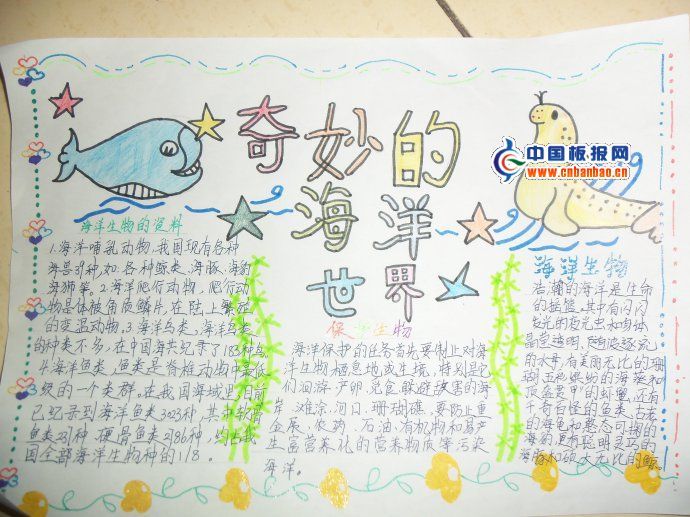 奇妙的
海洋
世界
中国板报网
www.cnbanbao.cn
海洋生物的资料
1.海洋哺乳动物,我国现有各种
海兽39种,如各种鲸类、海豚、海豹
海狮等。2.海洋爬行动物,爬行动
物是体被角质鳞片,在陆上繁殖
的变温动物。3.海洋鸟类,海洋鸟类
的种类不多,在中国海共纪录了183种鸟
4.海洋鱼类,鱼类是脊椎动物中最低
级的一个类群。在我国海域里,目前
已纪录到海洋鱼类3023种,其中软骨
鱼类237种,硬骨鱼类2786种,约占我
国全部海洋生物种的1/8。
保护生物
海洋保护的任务首先要制止对海
洋生物栖息地或生境,特别是它
们洄游、产卵、觅食、躲避敌害的海
岸、滩涂、河口、珊瑚礁,要防止重
金属、农药、石油、有机物和易产
生富营养化的营养物质等污染
海洋。
海洋生物
浩瀚的海洋是生命
的摇篮,其中有闪闪
发光的夜光虫和肉体
晶莹透明、随波逐流
的水母,有美丽无比的珊
瑚
有
奇形怪白的鱼类,古老
的海龟和憨态可掬的
海豹,更有聪明灵巧的
海豚和硕大无比的鲸。